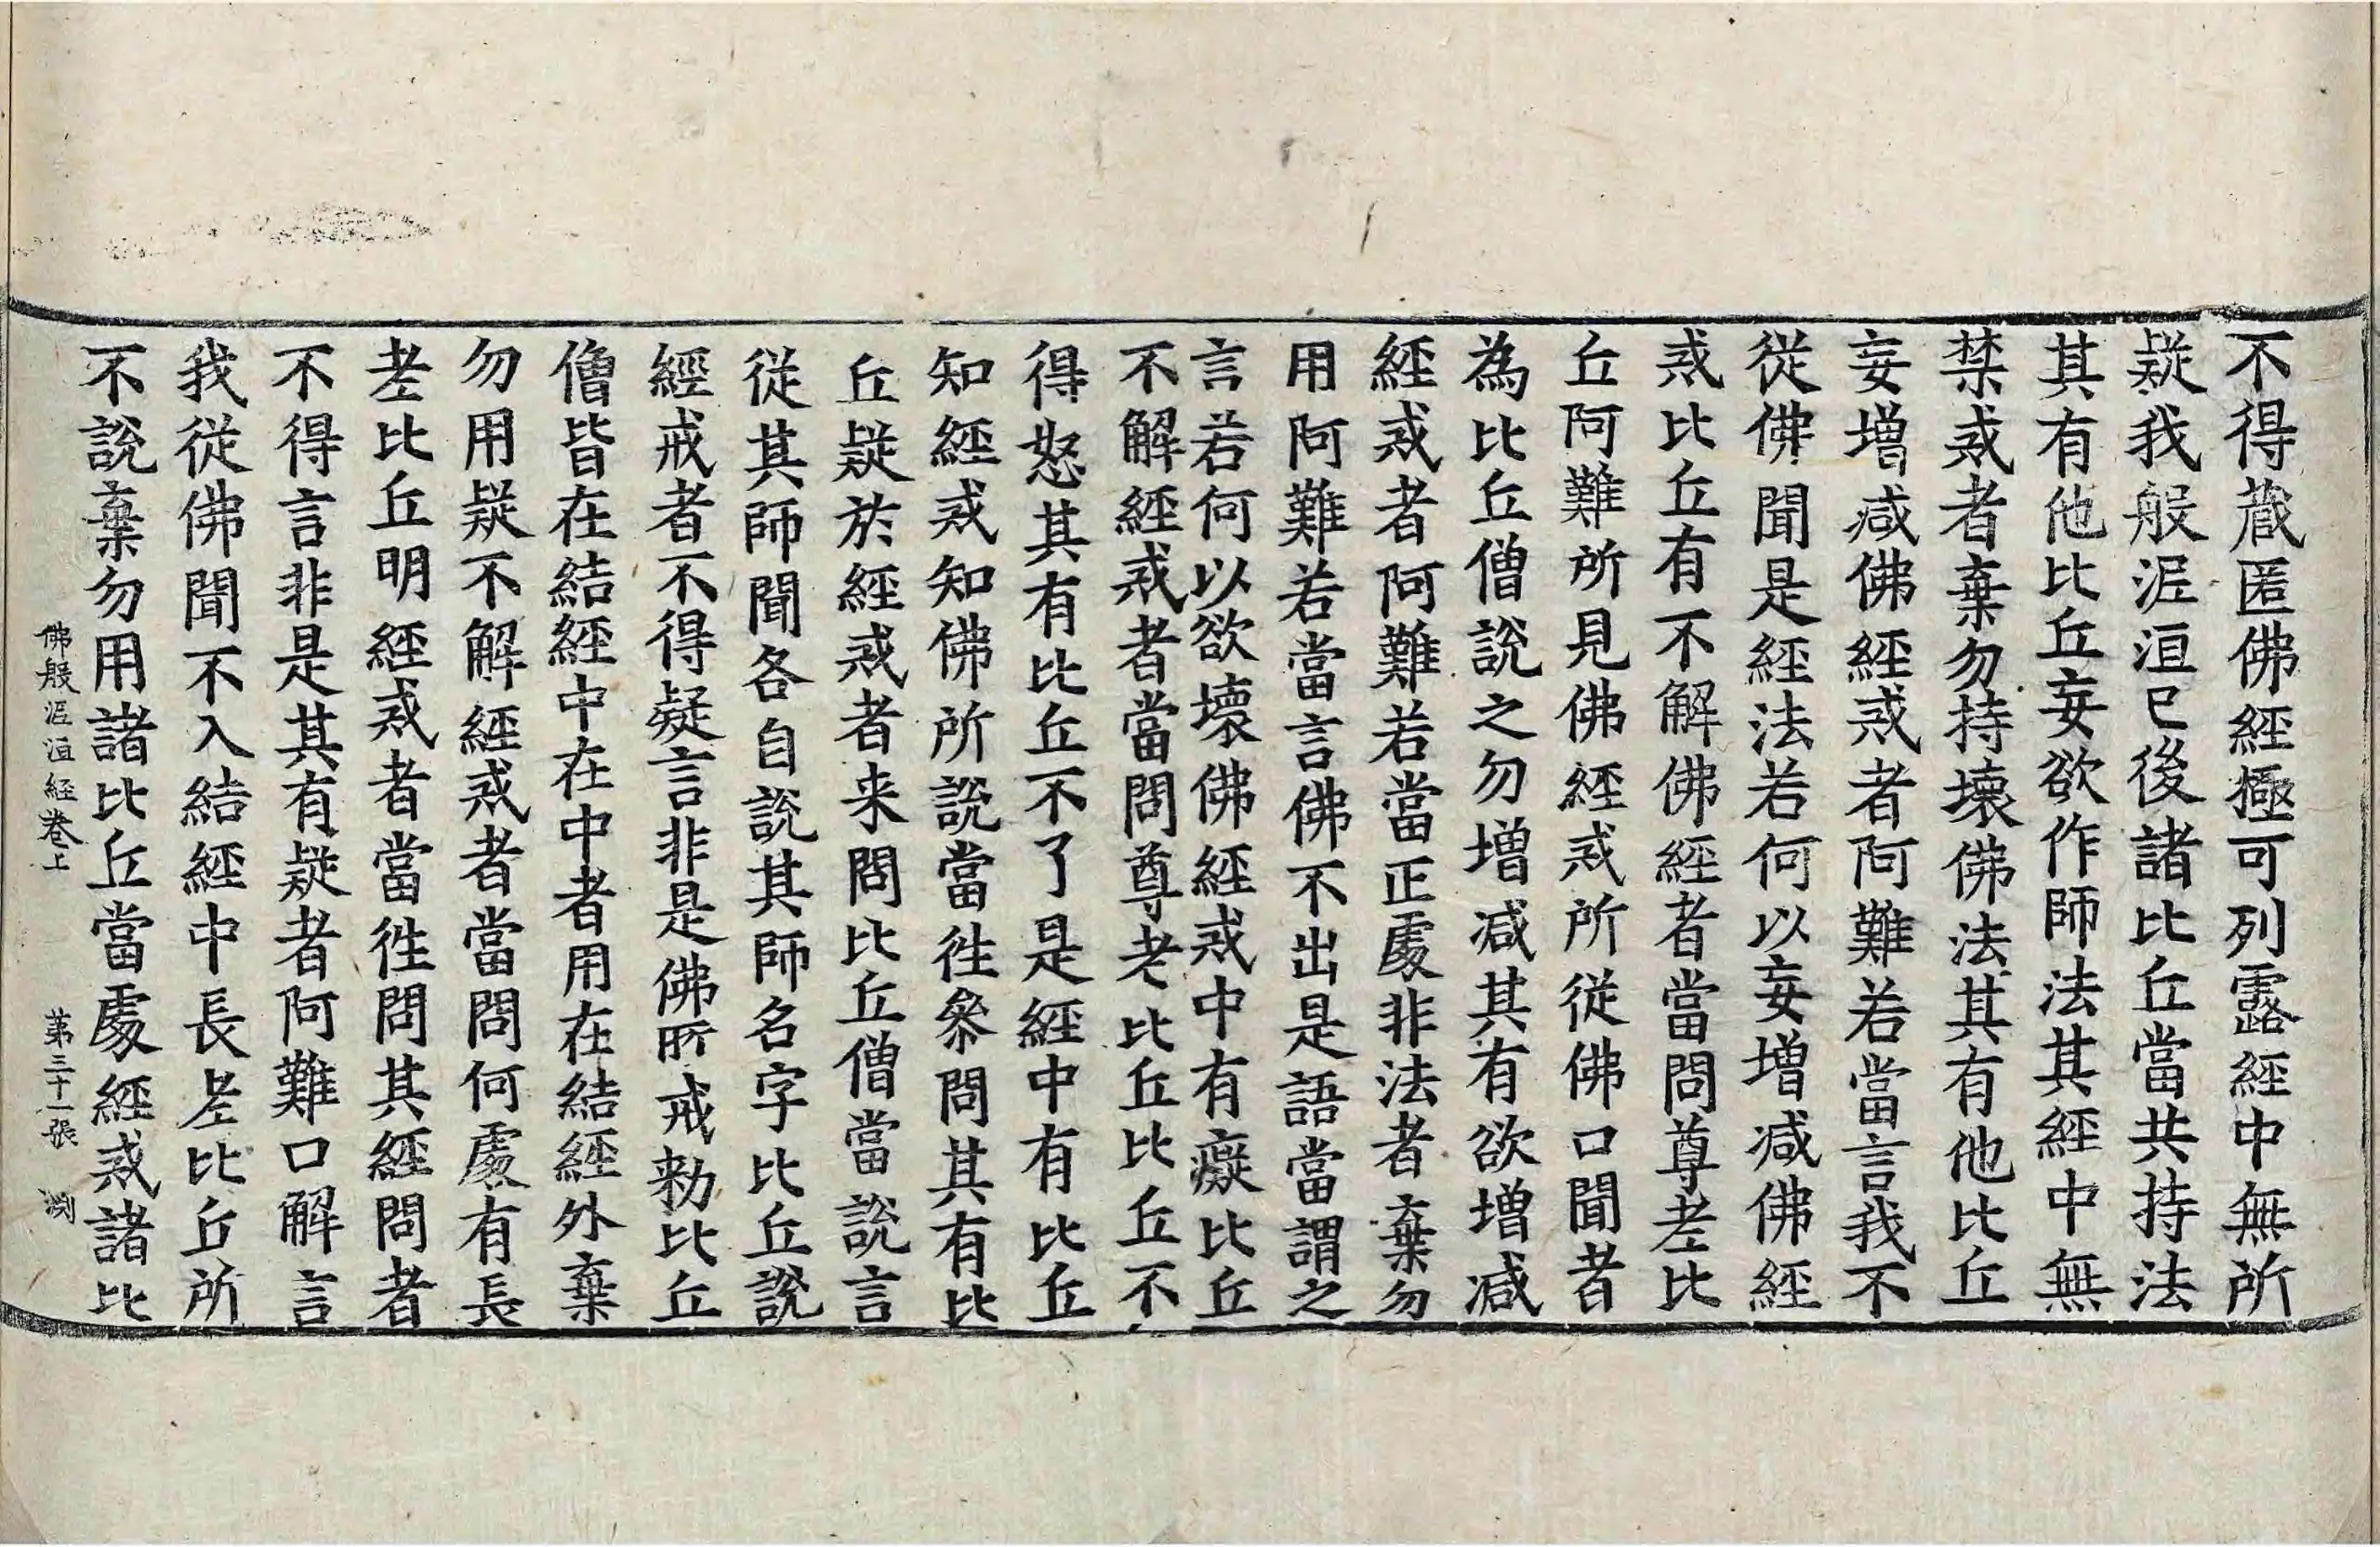 不得蔵匿佛經極可列露經中無所
疑我般泥洹已後諸比丘當共持法
其有他比丘妄欲作師法其經中無
禁戒者棄勿持壞佛法其有他比丘
妄增減佛經戒者阿難若當言我不
從佛聞是經法若何以妄增減佛經
戒比丘有不解佛經者當問尊老比
丘阿難所見佛經戒所從佛口聞者
為比丘僧說之勿增減其有欲增減
經戒者阿難若當正處非法者棄勿
用阿難若當言佛不出是語當謂之
言若何以欲壞佛經戒中有癡比丘
不解經戒者當問尊老比丘比丘不
得怒其有比丘不了是經中有比丘
知經戒知佛所說當往叅問其有比
丘疑於經戒者来問比丘僧當說言
從其師聞各自說其師名字比丘說
經戒者不得疑言非是佛所戒勑比丘
僧皆在結經中在中者用在結經外棄
勿用疑不解經戒者當問何處有長
老比丘明經戒者當往問其經問者
不得言非是其有疑者阿難口解言
我從佛聞不入結經中長老比丘所
不說棄勿用諸比丘當處經戒諸比
佛般泥洹經卷上　第三十一張　渕